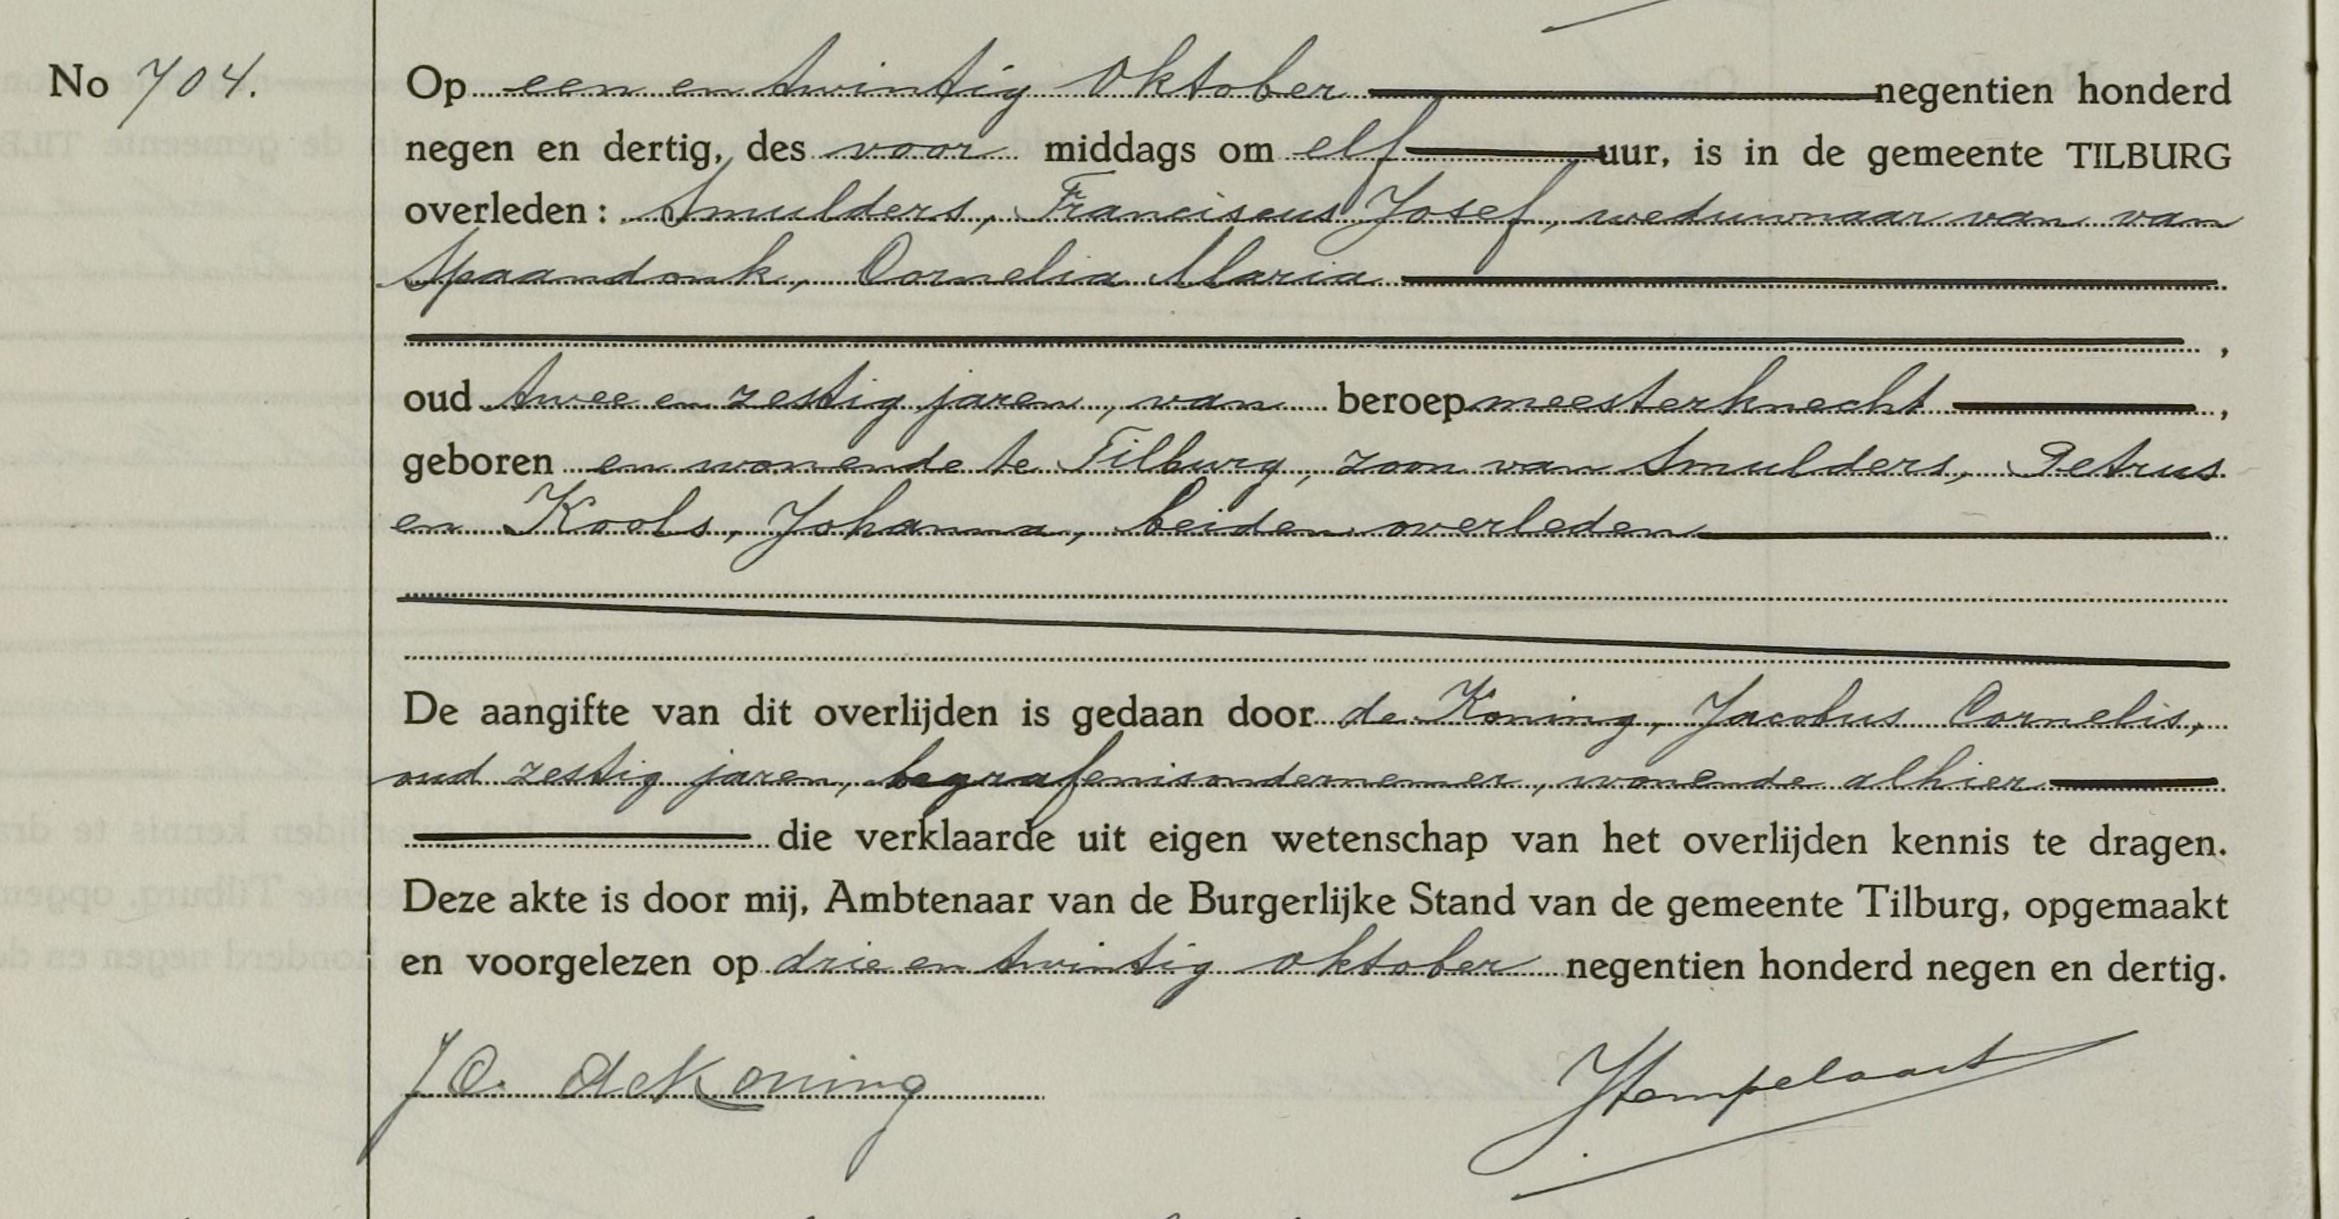 No 704.
Op een en twintig Oktober negentien honderd
negen en dertig, des voor middags om elf uur, is in de gemeente TILBURG
overleden: Smulders, Franciscus Josef, weduwnaar van van
Spaandonk, Cornelia Maria
oud twee en zestig jaren, van beroep meesterknecht,
geboren en wonende te Tilburg, zoon van Smulders, Petrus
en Kools, Johanna, beiden overleden
De aangifte van dit overlijden is gedaan door de Koning, Jacobus Cornelis,
oud zestig jaren, begrafenisondernemer, wonende alhier
die verklaarde uit eigen wetenschap van het overlijden kennis te dragen.
Deze akte is door mij, Ambtenaar van de Burgerlijke Stand van de gemeente Tilburg, opgemaakt
en voorgelezen op drie en twintig oktober negentien honderd negen en dertig.
J C. de Koning